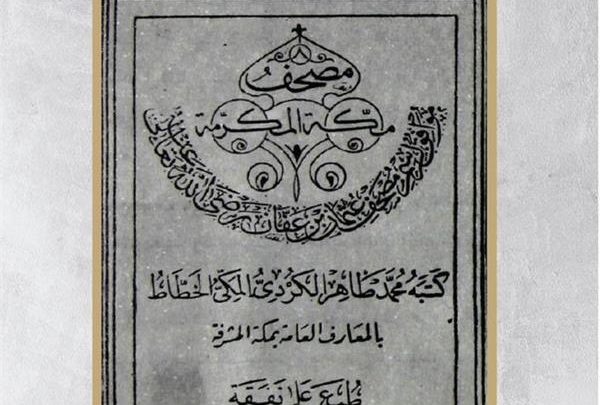 مصحف
مكة المكرمة
موافق لرسم مصحف عثمان بن عفان رضي الله تعالى عنه
كتبه محمد طاهر الكردي المكي الخطاط
بالمعارف العامة بمكة المشرفة
طبع على نفقة